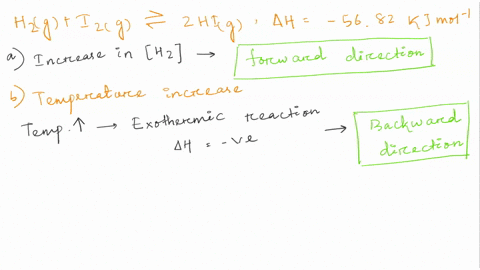 H₂(g) + I₂(g) ⇌ 2HI(g), ΔH = -56.82 KJ mol⁻¹
a) Increase in [H₂] → forward direction
b) Temperature increase
Temp. ↑ → Exothermic reaction → Backward direction
ΔH = -ve